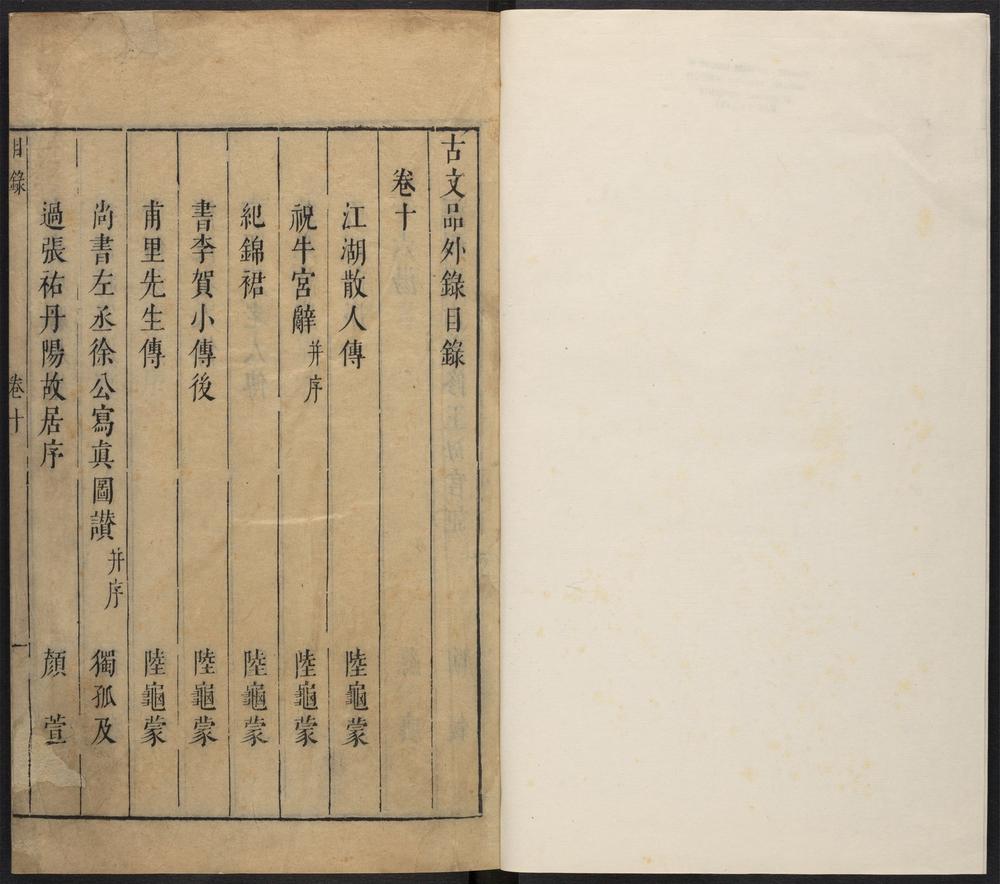 古文品外錄目錄
卷十
江湖散人傳 陸龜蒙
祝牛宮辭 并序 陸龜蒙
紀錦裙 陸龜蒙
書李賀小傳後 陸龜蒙
甫里先生傳 陸龜蒙
尚書左丞徐公寫真圖讃 并序 獨孤及
過張祐丹陽故居序 顏萱
目錄 卷十 一